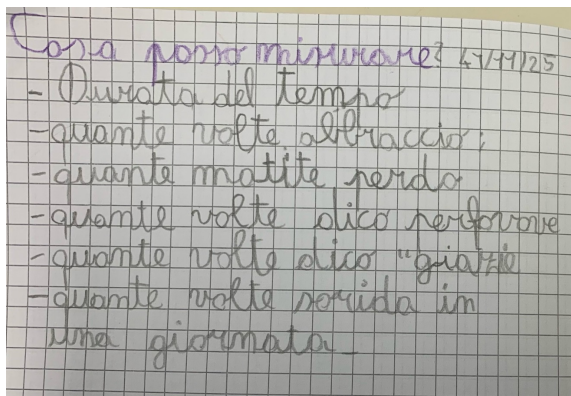 Cosa posso misurare? 4/11/25
- Durata del tempo
- quante volte abbraccio;
- quante matite perdo
- quante volte dico perfovove
- quante volte dico "giazie
- quante volte sorida in
una giornata